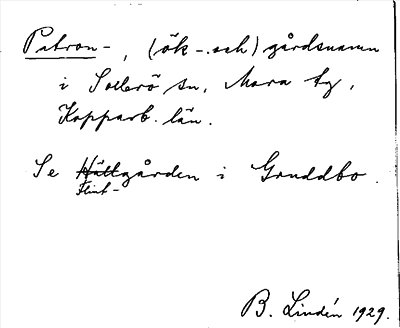 Petron-, (ök-.och) gårdsnamn
i Sollerö sn, Mora tg,
Kopparb. län.
Se Hättgården i Gruddbo.
Flint-
B. Lindén 1929.